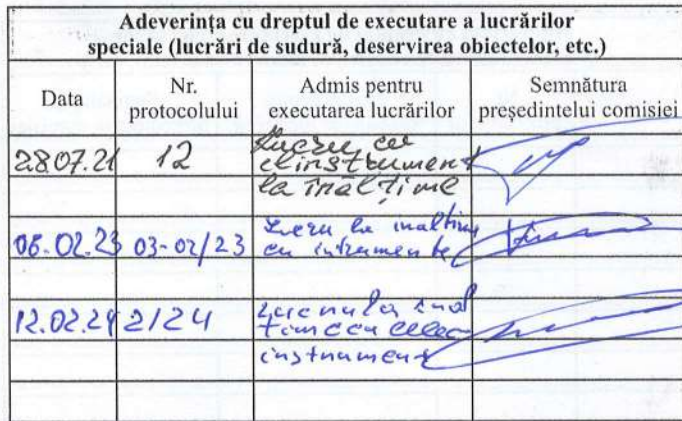 Adeverința cu dreptul de executare a lucrărilor
speciale (lucrări de sudură, deservirea obiectelor, etc.)
Data
Nr.
protocolului
Admis pentru
executarea lucrărilor
Semnătura
președintelui comisiei
28.07.21 12 Lucru cu
el.instrument
la înălțime
06.02.23 03-02/23 Lucru la inaltime
cu intrumente
12.02.24 2/24
instrument